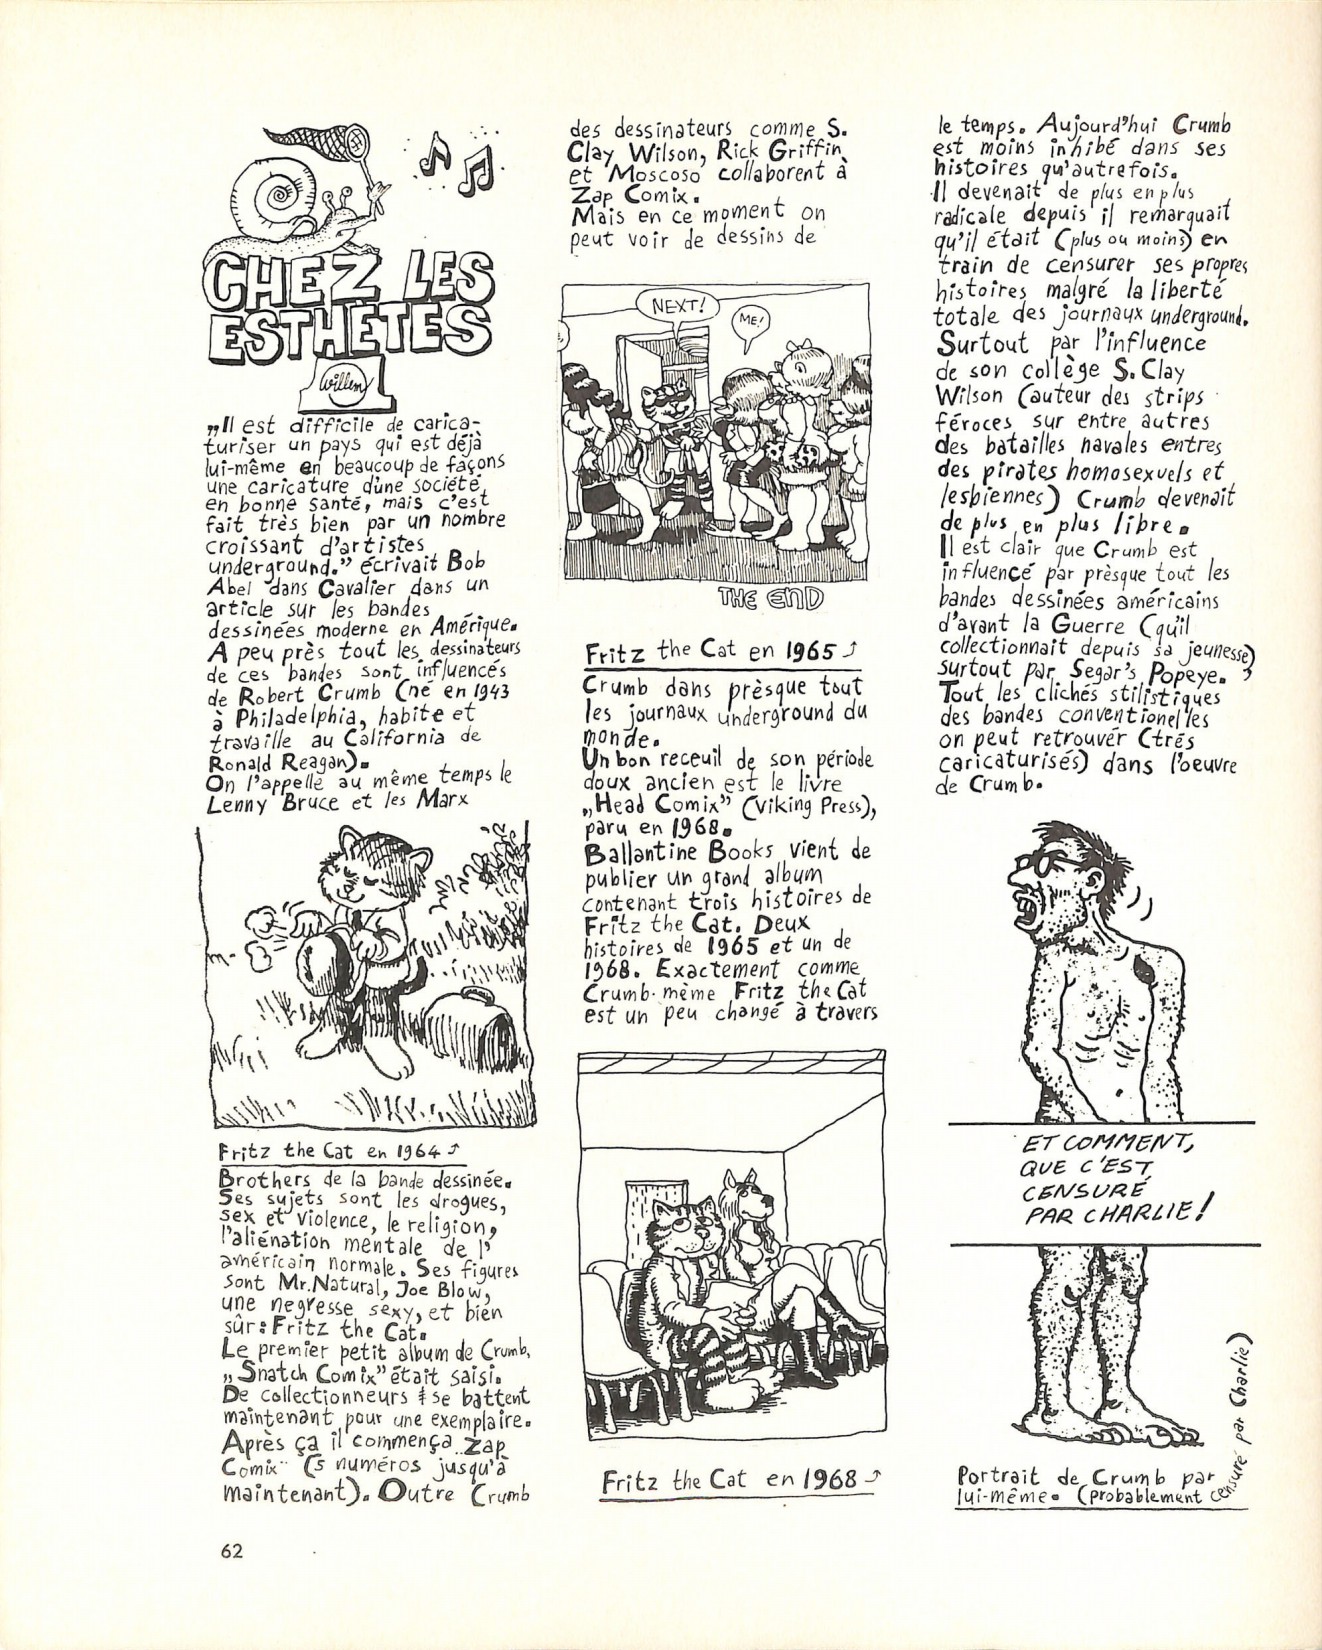 CHEZ LES
ESTHÈTES
Willem
„Il est difficile de carica-
turiser un pays qui est déjà
lui-même en beaucoup de façons
une caricature d'une société
en bonne santé, mais c'est
fait très bien par un nombre
croissant d'artistes
underground." écrivait Bob
Abel dans Cavalier dans un
article sur les bandes
dessinées moderne en Amérique.
A peu près tout les dessinateurs
de ces bandes sont influencés
de Robert Crumb (né en 1943
à Philadelphia, habite et
travaille au California de
Ronald Reagan).
On l'appelle au même temps le
Lenny Bruce et les Marx
Fritz the Cat en 1964
Brothers de la bande dessinée.
Ses sujets sont les drogues,
sex et violence, le religion,
l'aliénation mentale de l'
américain normale. Ses figures
sont Mr. Natural, Joe Blow,
une negresse sexy, et bien
sûr: Fritz the Cat.
Le premier petit album de Crumb,
„Snatch Comix" était saisi.
De collectionneurs se battent
maintenant pour une exemplaire.
Après ça il commença „Zap
Comix" (5 numéros jusqu'à
maintenant). Outre Crumb
62
des dessinateurs comme S.
Clay Wilson, Rick Griffin
et Moscoso collaborent à
Zap Comix.
Mais en ce moment on
peut voir de dessins de
NEXT!
ME!
THE END
Fritz the Cat en 1965
Crumb dans prèsque tout
les journaux underground du
monde.
Un bon receuil de son période
doux ancien est le livre
„Head Comix" (Viking Press),
paru en 1968.
Ballantine Books vient de
publier un grand album
contenant trois histoires de
Fritz the Cat. Deux
histoires de 1965 et un de
1968. Exactement comme
Crumb-mème Fritz the Cat
est un peu changé à travers
Fritz the Cat en 1968
le temps. Aujourd'hui Crumb
est moins inhibé dans ses
histoires qu'autrefois.
Il devenait de plus en plus
radicale depuis il remarquait
qu'il était (plus ou moins) en
train de censurer ses propres
histoires malgré la liberté
totale des journaux underground.
Surtout par l'influence
de son collège S. Clay
Wilson (auteur des strips
féroces sur entre autres
des batailles navales entres
des pirates homosexuels et
lesbiennes) Crumb devenait
de plus en plus libre.
Il est clair que Crumb est
influencé par prèsque tout les
bandes dessinées américains
d'avant la Guerre (qu'il
collectionnait depuis sa jeunesse),
surtout par Segar's Popeye.
Tout les clichés stilistiques
des bandes conventionelles
on peut retrouvér (trés
caricaturisés) dans l'oeuvre
de Crumb.
ET COMMENT,
QUE C'EST
CENSURÉ
PAR CHARLIE!
Portrait de Crumb par
lui-même. (probablement censuré par Charlie)